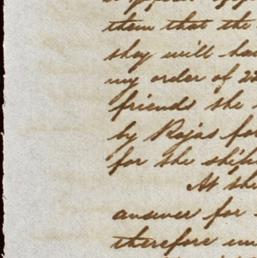 them that the
they will ha
my order of 22
friends the
by Rojas for
for the ship
At the
answer for
therefore un